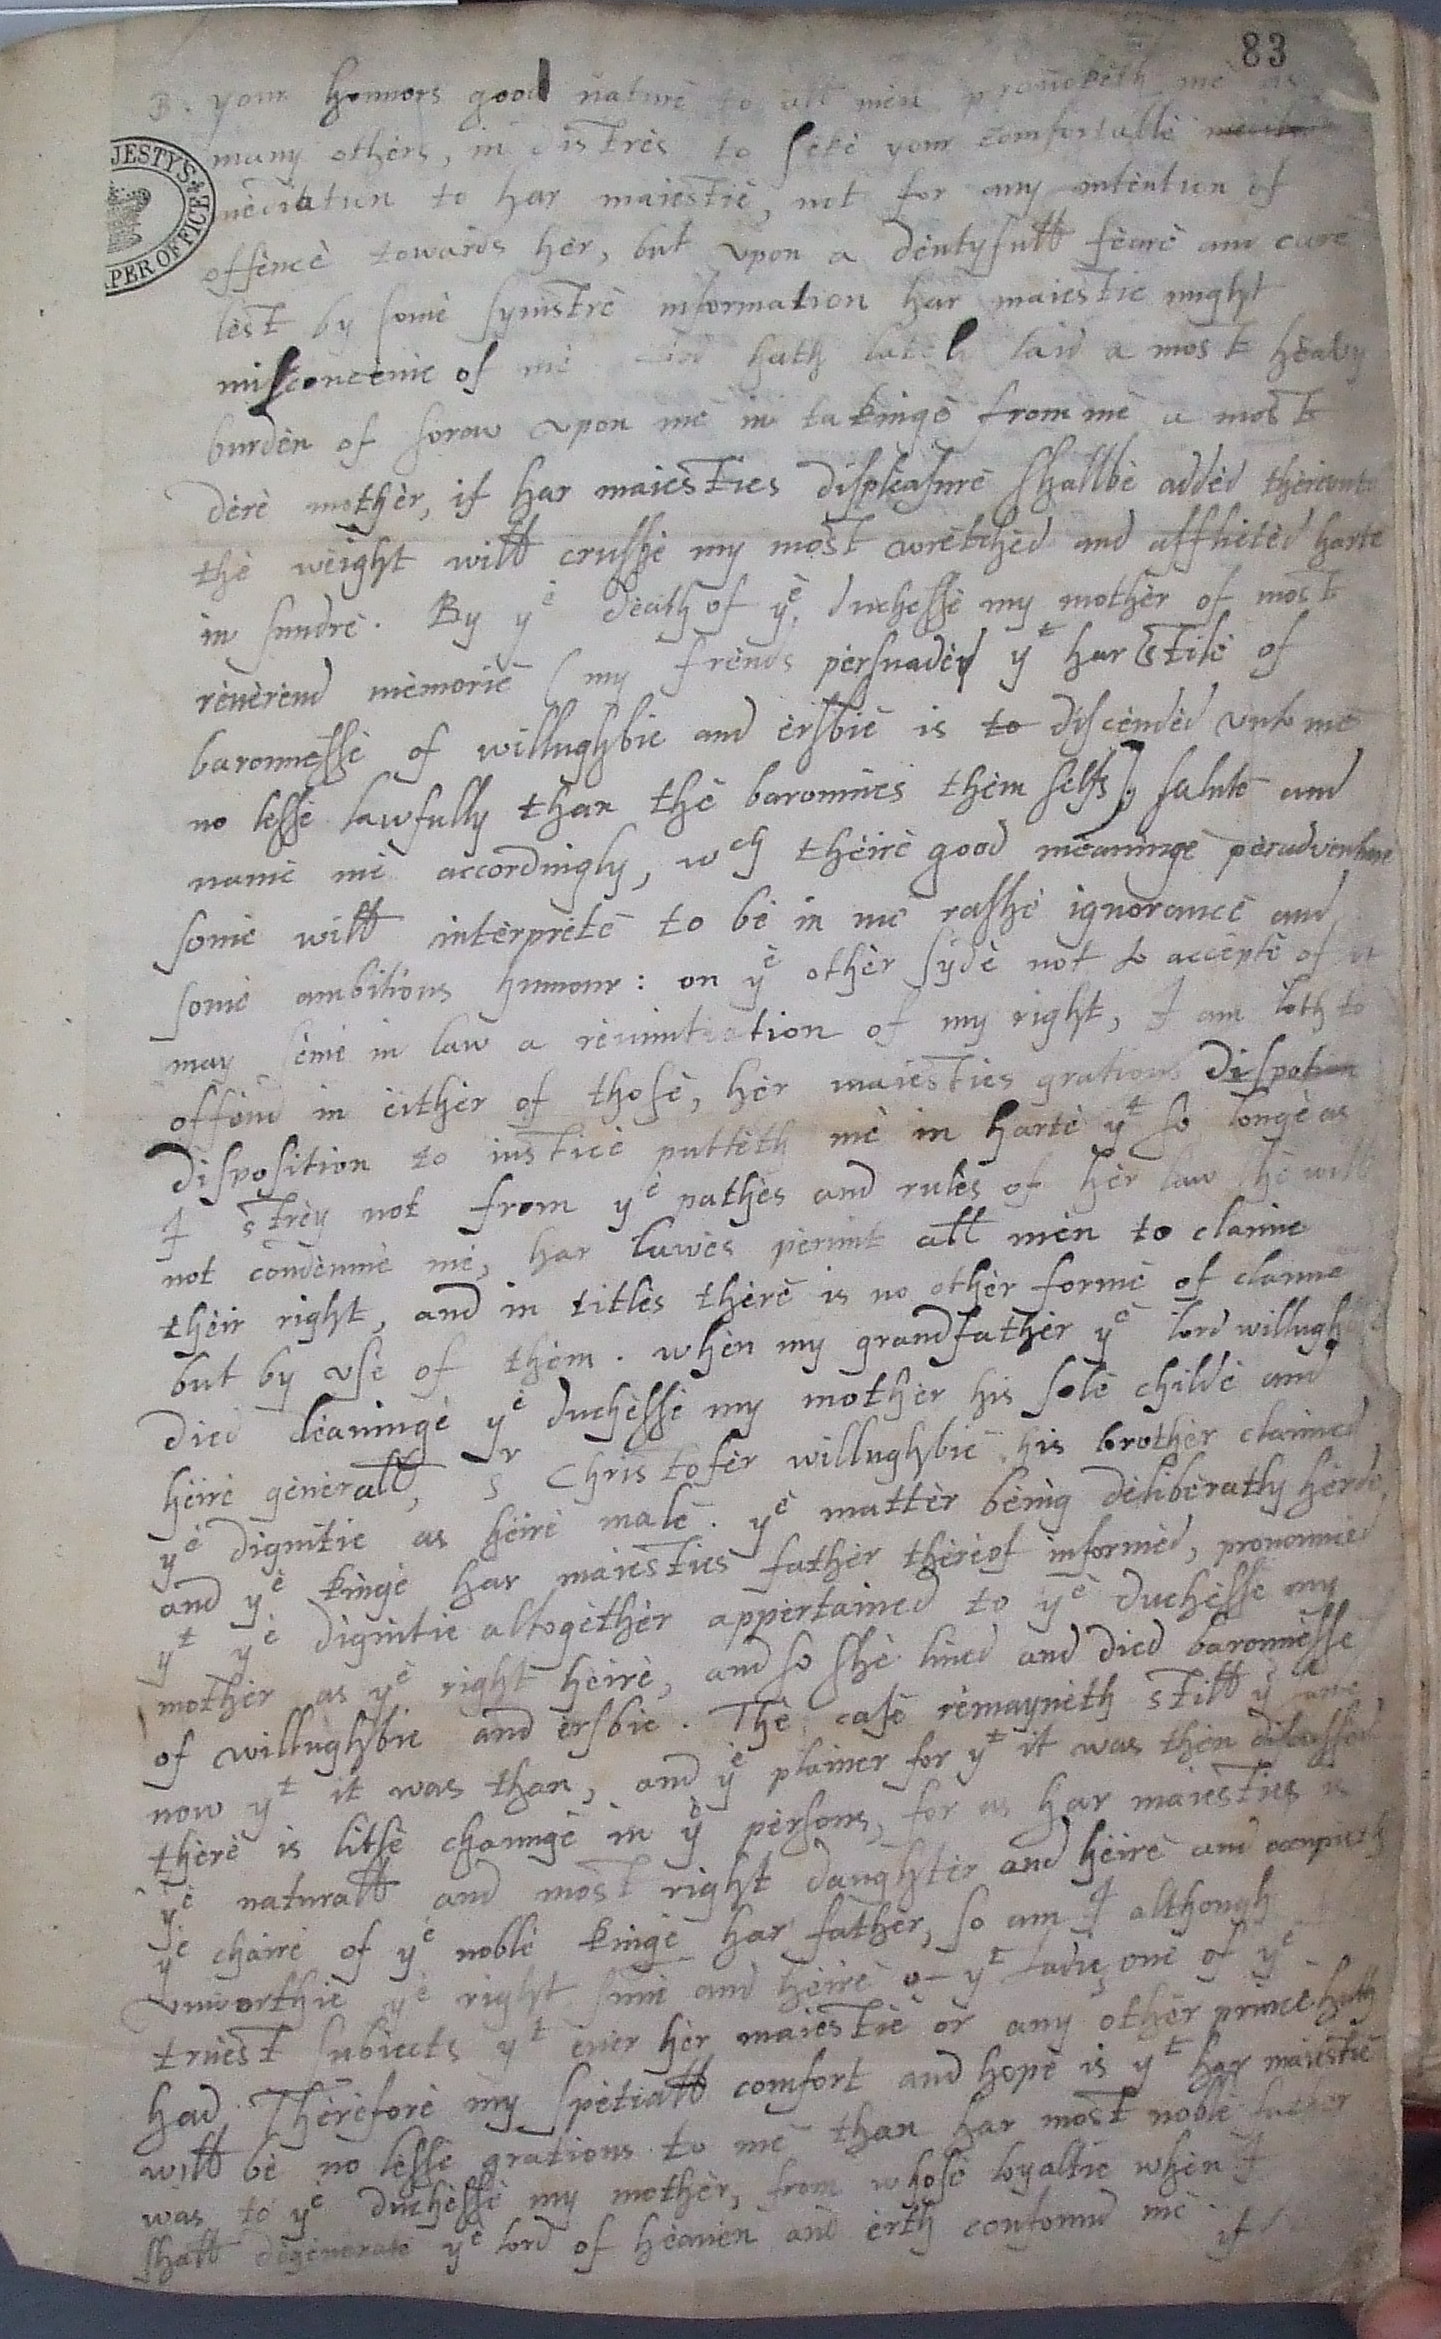 83
B. your honnors good nature to all men prouoketh me as
many others, in distres to seke your comfortable
mediatiun to har maiestie, not for any intentiun of
offence towards her, but vpon a deutyfull feare and care
lest by some synistre information har maiestie might
misconceiue of me hath lately laid a most heavy
burden of sorow vpon me in takinge from me a most
dere mother, if har maiesties displeasure shallbe added thereunto
the weight will crusshe my most wretched and afflicted harte
in sundre. By yᵉ death of yᵉ duchesse my mother of most
reuerend memorie (my frends persuaded yᵗ har stile of
baronnesse of willughbie and ersbie is to discended vnto me
no lesse lawfully than the baronnies them selfs) salute and
name me accordingly, wᶜʰ theire good meaninge peradventure
some will interprete to be in me rashe ignorance and
some ambitious humour: on yᵉ other syde not to accepte of it
may seme in law a renuntiation of my right, I am loth to
offend in either of those, her maiesties gratious dispotion
disposition to iustice putteth me in harte yᵗ so longe as
I strey not from yᵉ pathes and rules of her law she will
not condemne me, har lawes permit all men to claime
their right, and in titles there is no other forme of clame
but by vse of them. when my grandfather yᵉ lord willughbie
died leauinge yᵉ duchesse my mother his sole childe and
heire generall, Sʳ Christofer willughbie his brother claimed
yᵉ dignitie as heire male. yᵉ matter being deliberatly herde
and yᵉ kinge har maiesties father thereof informed, pronounced
yᵗ yᵉ dignitie altogether appertained to yᵉ duchesse my
mother as yᵉ right heire, and so she liued and died baronnesse
of willughbie and ersbie. The case remayneth still yᵉ same
now yᵗ it was than, and yᵉ plainer for yᵗ it was then discussed
there is litle chaunge in yᵉ persons, for as har maiesties is
yᵉ naturall and most right daughter and heire and occupieth
yᵉ chaire of yᵉ noble kinge har father, so am I although
vnworthie yᵉ right sune and heire of yᵗ lady one of yᵉ
truest subiects yᵗ euer her maiestie or any other prince hath
had. Therefore my spetiall comfort and hope is yᵗ har maiestie
will be no lesse gratious to me than har most noble father
was to yᵉ duchesse my mother, from whose loyaltie when I
shall degenerate yᵉ lord of heauen and erth confound me
if
JESTY'S
PER OFFICE